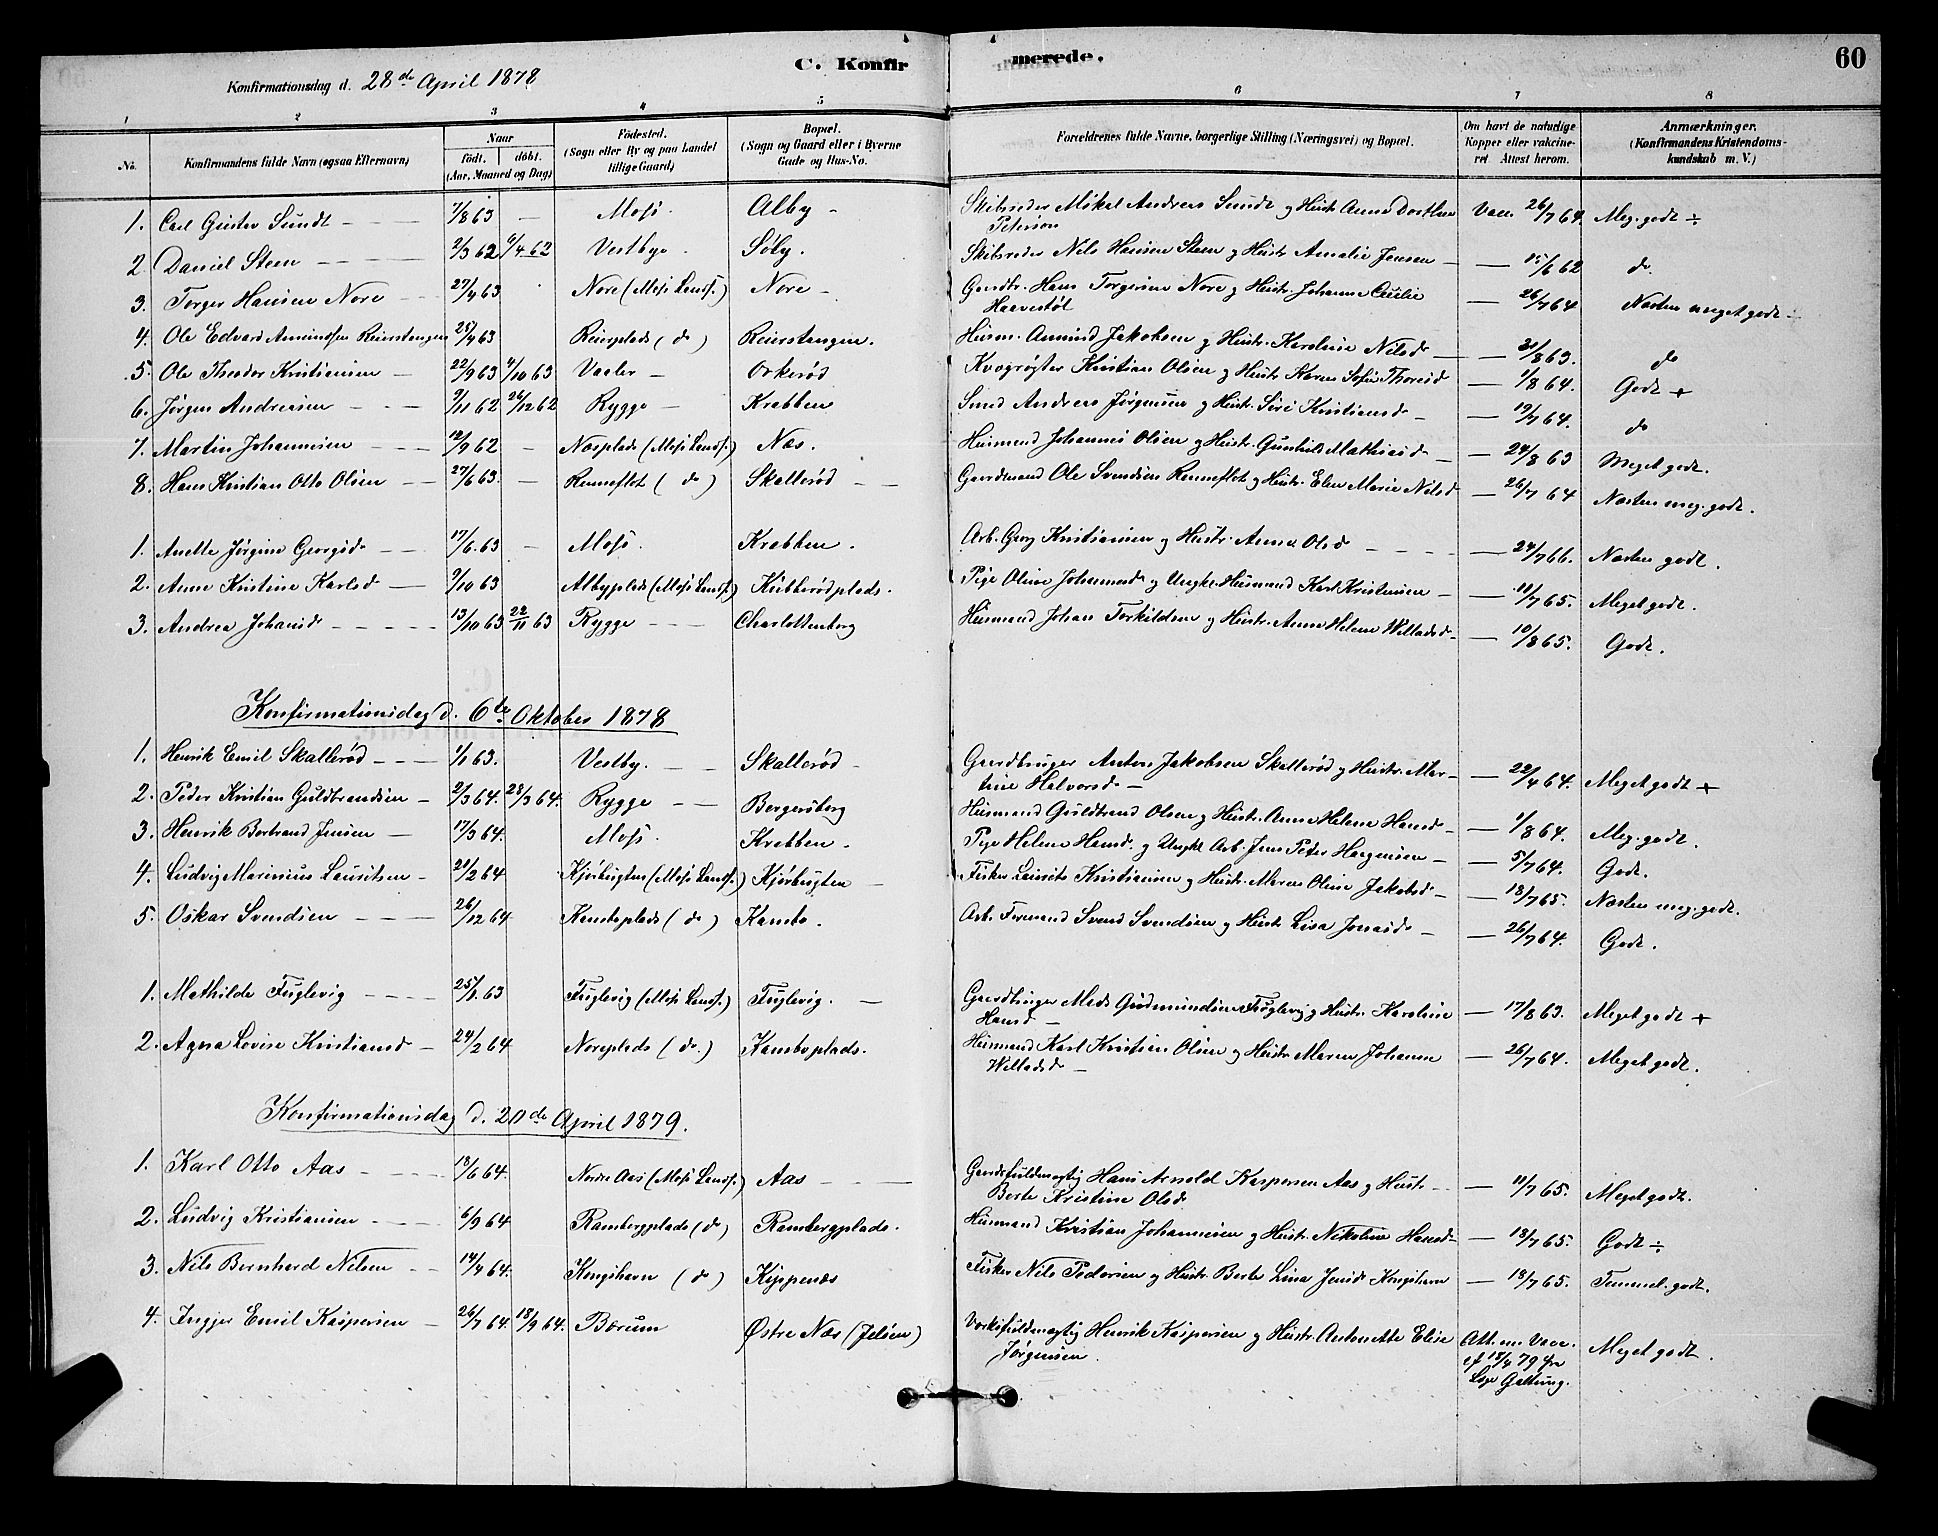 C. Konfirmerede. 60
Konfirmationsdag d. 28de April 1878
1 2 3 4 5 6 7 8
No. Konfirmandens fulde Navn (ogsaa Efternavn) Naar født. døbt. (Aar, Maaned og Dag) Fødested. (Sogn eller By og paa Landet tillige Gaard) Bopæl. (Sogn og Gaard eller i Byerne Gade og Hus-No. Forældrenes fulde Navne, borgerlige Stilling (Næringsvei) og Bopæl. Om havt de naturlige Kopper eller vakcineret Attest herom. Anmærkninger. (Konfirmandens Kristendomskundskab m. V.)
1. Carl Gustav Sundt 7/8 63 — Moss. Alby — Skibsreder Mikal Andreas Sundt og Hustr. Anne Dorthea Peterson Vacc. 26/7 64. Meg. godt ÷
2. Daniel Steen 2/3 62 6/4 62 Vestbye Søby. Skibsreder Nils Hansen Steen og Hustr. Amalie Jensen — 15/6 62 do.
3. Torger Hansen Nore 27/4 63 Nore (Moss Lands.) Nore — Gaardbr. Hans Torgersen Nore og Hustr. Johanne Cecilie Haavestøl — 26/7 64 Næsten meget godt
4. Ole Edvard Amundsen Reierstangen 25/4 63 Reierplads (do) Reierstangen. Husm. Amund Jakobsen og Hustr. Karoline Nilsd. — 31/8 63. do
5. Ole Theodor Kristiansen 22/9 63 4/10 63 Vaaler — Orkerød Kvægrøgter Kristian Olsen og Hustr. Karen Sofie Thoresd — 1/8 64. Godt +
6. Jørgen Andreasen 9/11 62 26/12 62 Rygge — Krabben Smed Andreas Jørgensen og Hustr. Siri Kristiansd. — 19/7 64. do
7. Martin Johannesen 12/9 62 — Næsplads (Moss Lands.) Næs. Husmand Johannes Olsen og Hustr. Gunhild Mathiasd. — 24/8 63 Meget godt.
8. Hans Kristian Otto Olsen 27/6 63. — Renneflot (do) Skallerød — Gaardmand Ole Svendsen Renneflot og Hustr. Elen Marie Nilsd — 26/7 64 Næsten meg. godt.
1. Anette Jørgine Georgsd. 17/6. 63 — Moss. Krabben. Arb. Georg Kristiansen og Hustr. Anne Olsd — 24/7 66. Næsten godt.
2. Anne Kristine Karlsd — 9/10 63 Albyplads (Moss Lands.) Kubberødplads. Pige Oline Johannesd. og Ungkl. Husmand Karl Kristensen — 11/7 65. Meget godt.
3. Andrea Johansd. 13/10 63 22/11 63 Rygge — Charlottenborg Husmand Johan Torkildsen og Hustr. Anne Helene Willadsd. — 10/8 65. Godt.
Konfirmationsdag d. 6te Oktober 1878
1. Henrik Emil Skallerød 1/1 63. Vestby. — Skallerød — Gaardbruger Anton Jakobsen Skallerød og Hustr. Martine Halvorsd. — 22/4 64. Meget godt +
2. Peder Kristian Guldbrandsen 2/3 64. 28/3 64. Rygge — Bergersborg Husmand Guldbrand Olsen og Hustr. Anne Helene Hansd. — 1/8 64. Meg. godt.
3. Henrik Bertrand Jensen — 17/3 64. Moss. Krabben. Pige Helene Hansd. og Ungkl. Arb. Jens Peter Hargensen — 5/7 64. Godt.
4. Ludvig Marinius Lauritsen — 21/2 64 Kjørbugten (Moss Lands.) Kjørbugten — Fisker Laurits Kristiansen og Hustr. Maren Oline Jakobsd. — 18/7 65. Næsten meg. godt.
5. Oskar Svendsen 26/12 64 Kamboplads (do) Kambo. Arb. Formand Svend Svendsen og Hustr. Lisa Jonasd. — 26/7 64. Godt.
1. Mathilde Fuglevig 25/1. 63 Fuglevig (Moss Lands.) Fuglevig. — Gaardbruger Mads Gudmundsen Fuglevig og Hustr. Karoline Hansd — 17/8 63. Meget godt +
2. Agna Lovise Kristiansd — 24/2 64 Noreplads (do.) Kamboplads. Husmand Karl Kristian Olsen og Hustr. Maren Johanne Willadsd. — 26/7 64. Meget godt.
Konfirmationsdag d. 20de April 1879.
1. Karl Otto Aas 18/6 64. Nordre Aas (Moss Lands.) Aas — Gaardsfuldmægtig Hans Arnold Kaspersen Aas og Hustr. Berte Kristine Olsd. — 11/7 65. Meget godt.
2. Ludvig Kristiansen 6/9 64 Rambergplads (do) Rambergplads. Husmand Kristian Johannesen og Hustr. Nikoline Hansd. — 18/7 65. Godt ÷
3. Nils Bernhard Nilsen 14/4 64. Kongshavn (do) Kippenæs Fisker Nils Pedersen og Hustr. Berte Lina Jensd. Kongshavn — 18/7 65. Temmel. godt.
4. Ingjer Emil Kaspersen — 26/7 64 18/9 64. Bærum Østre Næs (Jeløen) Værksfuldmægtig Henrik Kaspersen og Hustr. Antonette Elise Jørgensen. Att. om Vacc. af 18/4 79 fra Læge Galtung. Meget godt.